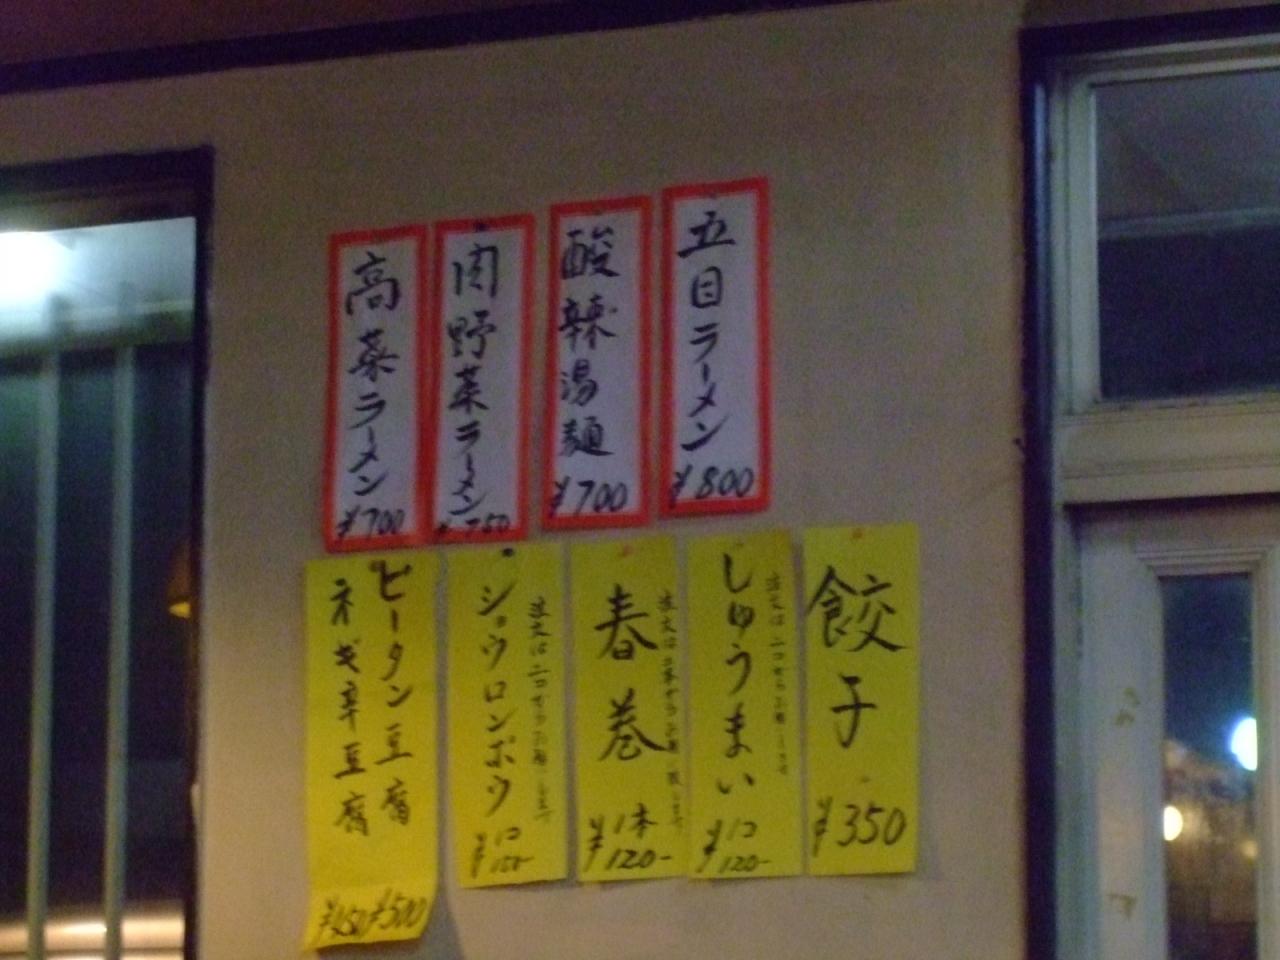 五目ラーメン
¥800
酸辣湯麺
¥700
肉野菜ラーメン
¥750
高菜ラーメン
¥700
餃子
¥350
しゅうまい
¥1コ
120-
春巻
¥1本
120-
ショウロンポウ
¥1コ
150-
ピータン豆腐
¥500
ネギ辛豆腐